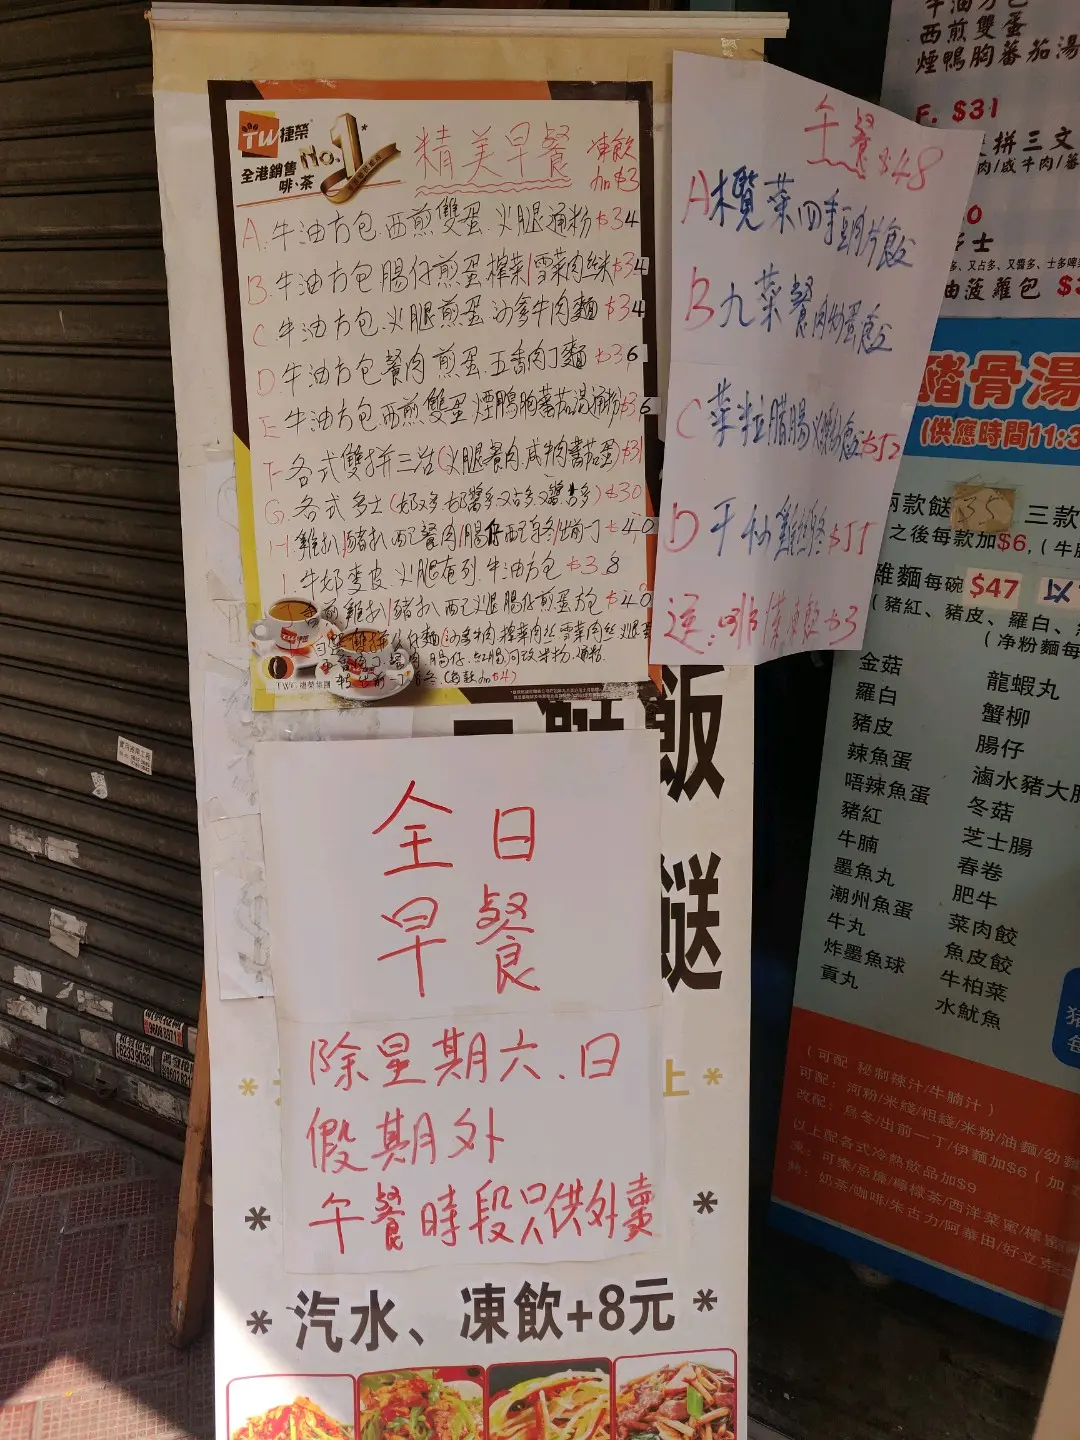 TW 捷榮
No.1
全港銷售
啡、茶
精美早餐
凍飲
加$3
A. 牛油方包.西煎雙蛋.火腿通粉 $34
B. 牛油方包腸仔煎蛋榨菜/雪菜肉絲米 $34
C. 牛油方包.火腿煎蛋沙爹牛肉麵 $34
D 牛油方包餐肉煎蛋.五香肉丁麵 $36
E 牛油方包西煎雙蛋煙鴨胸蕃茄湯通粉 $36
F. 各式雙拼三治(火腿餐肉.咸牛肉蕃茄蛋) $31
G. 各式多士 $30
H. 雞扒/豬扒 西已餐肉/腸仔 出前一丁 $40
I. 牛奶麥皮.火腿奄列.牛油方包 $38
雞扒/豬扒 西已火腿腸仔煎蛋方包 $40
TWG 捷榮集團
午餐 $48
A 欖菜四季豆肉片飯
B 九菜餐肉炒蛋飯
C 菜粒腊腸炒飯 $52
D 干炒雞絲 $55
送:啡/茶 凍飲 $3
飯
餸
全日
早餐
除星期六.日
假期外
午餐時段只供外賣
上 *
* 汽水、凍飲+8元 *
西煎雙蛋
煙鴨胸蕃茄湯
F. $31
拼三文
肉/咸牛肉/蕃
多士
油菠蘿包
豬骨湯
(供應時間11:3
兩款餸 35 三款
之後每款加$6,(牛
雜麵每碗 $47 以
(豬紅、豬皮、羅白、
(净粉麵每
金菇
羅白
豬皮
辣魚蛋
唔辣魚蛋
豬紅
牛腩
墨魚丸
潮州魚蛋
牛丸
炸墨魚球
貢丸
龍蝦丸
蟹柳
腸仔
滷水豬大腸
冬菇
芝士腸
春卷
肥牛
菜肉餃
魚皮餃
牛柏菜
水魷魚
(可配 秘制辣汁/牛腩汁)
可配:河粉/米綫/粗綫/米粉/油麵/幼麵
改配:烏冬/出前一丁/伊麵加$6(加
以上配各式冷熱飲品加$9
凍:可樂/忌廉/檸檬茶/西洋菜蜜/檸蜜
熱:奶茶/咖啡/朱古力/阿華田/好立克